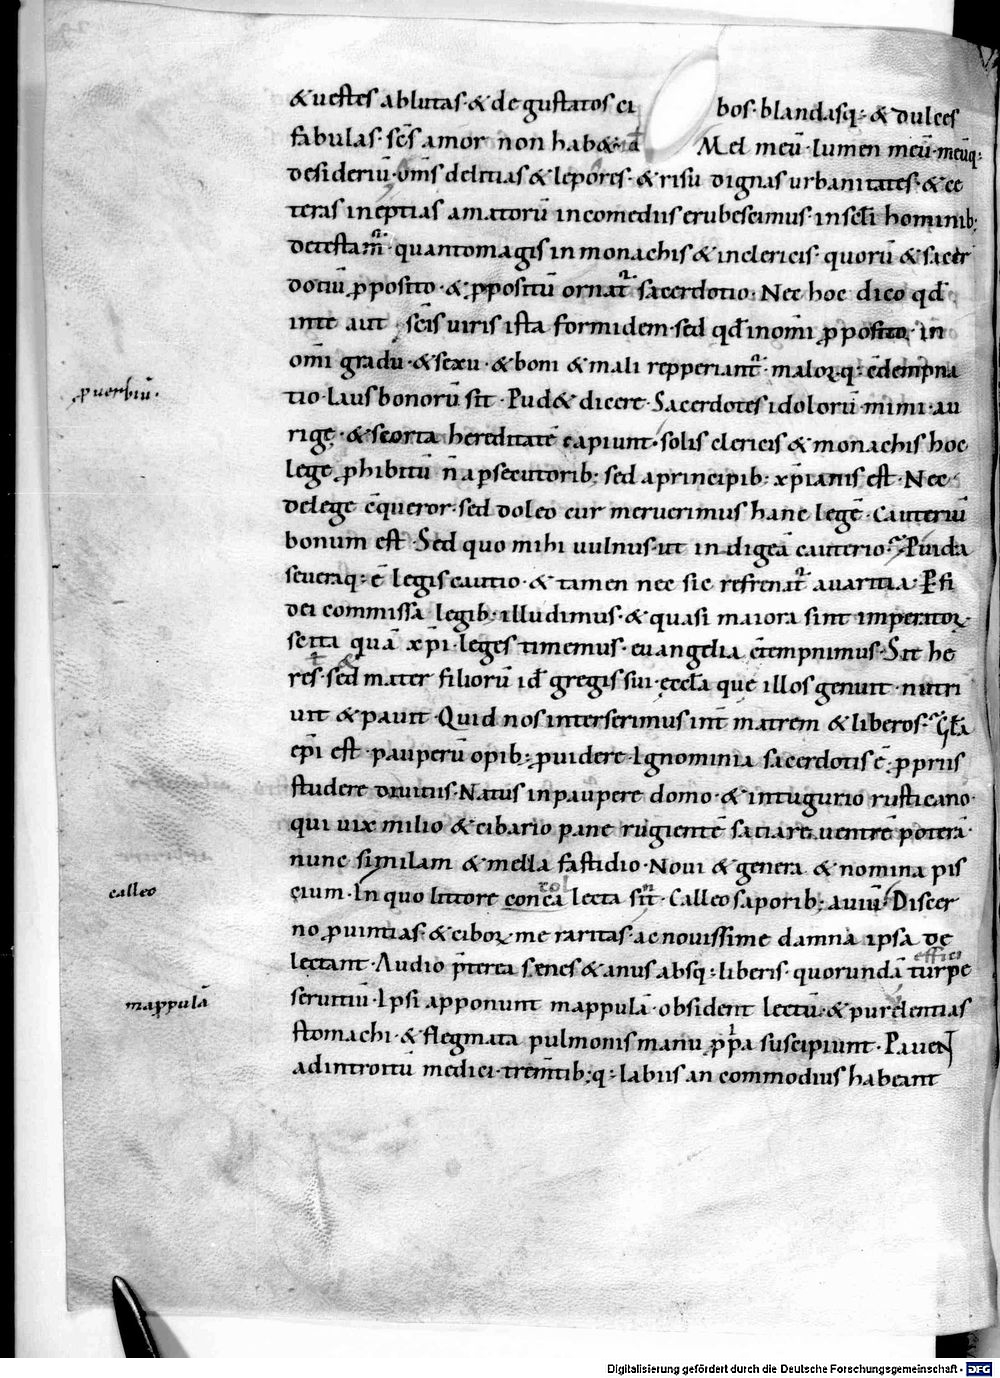 &uestes ablutas·&degustatos ci bos·blandasq:&dulces
fabulas·scs amor non hab&· Mel meū·lumen meū·meūq:
desideriū·oms delitias & lepores·& risu dignas urbanitates·& ce
teras ineptias amatorū incomediis erubescimus·inscli hominib;
detestam̄·quantomagis in monachis & inclericis·quorū & sacer
dotiū ꝓposito·& ꝓpositū ornat̄ sacerdotio·Nec hoc dico qđ
inte aut scīs uiris ista formidem·sed qđ inomī ꝓposito·in
omi gradu·& sexu·& boni & mali repperiant̄·maloꝝq: cdempna
tio·laus bonorū sit·Pud& dicere·Sacerdotes idolorū·mimi·au
ꝓuerbiū·
rigę·& scorta hereditatē capiunt·solis clericis & monachis hoc
lege ꝓhibitū n̄ apsecutorib; sed aprincipib: xp̄ianis est·Nec
delege c̄queror·sed doleo cur meruerimus hanc legē·Cauteriū
bonum est·Sed quo mihi uulnus·ut indigeā cauterio·Puida
seueraq: ē legis cautio·& tamen nec sic refrenat̄ auaritia·P fi
dei commissa legib; illudimus·& quasi maiora sint imperatoꝝ
scita quā xp̄i·leges timemus·euangelia c̄tempnimus·Sit he
res·sed mater filiorū iđ gregis sui·ęccła que illos genuit·nutri
uit & pauit·Quid nos interserimus int̄ matrem & liberos·Głā
ep̄i est·pauperū opib; ꝓuidere·Ignominia sacerdotis ē ꝓpriis
studere diuitiis·Natus inpaupere domo·& intugurio rusticano·
qui uix milio & cibario pane rugientē satiare uentrē poterā·
nunc similam & mella fastidio·Noui & genera & nomina pis
calleo
cium·In quo littore conca lecta sit̄·Calleo saporib; auiū·Discer
no ꝓuintias·& ciboꝝ me raritas·ac nouissime damna ipsa de
lectant·Audio p̄terea senes & anus absq: liberis·quorundā turpe
effici
mappulā
seruitiū·Ipsi apponunt mappulā·obsident lectū·& purulentias
stomachi·& flegmata pulmonis manu ꝓpa suscipiunt·Pauent
adintroitū medici·trem̄tib;q: labiis an commodius habeant
Digitalisierung gefördert durch die Deutsche Forschungsgemeinschaft - DFG